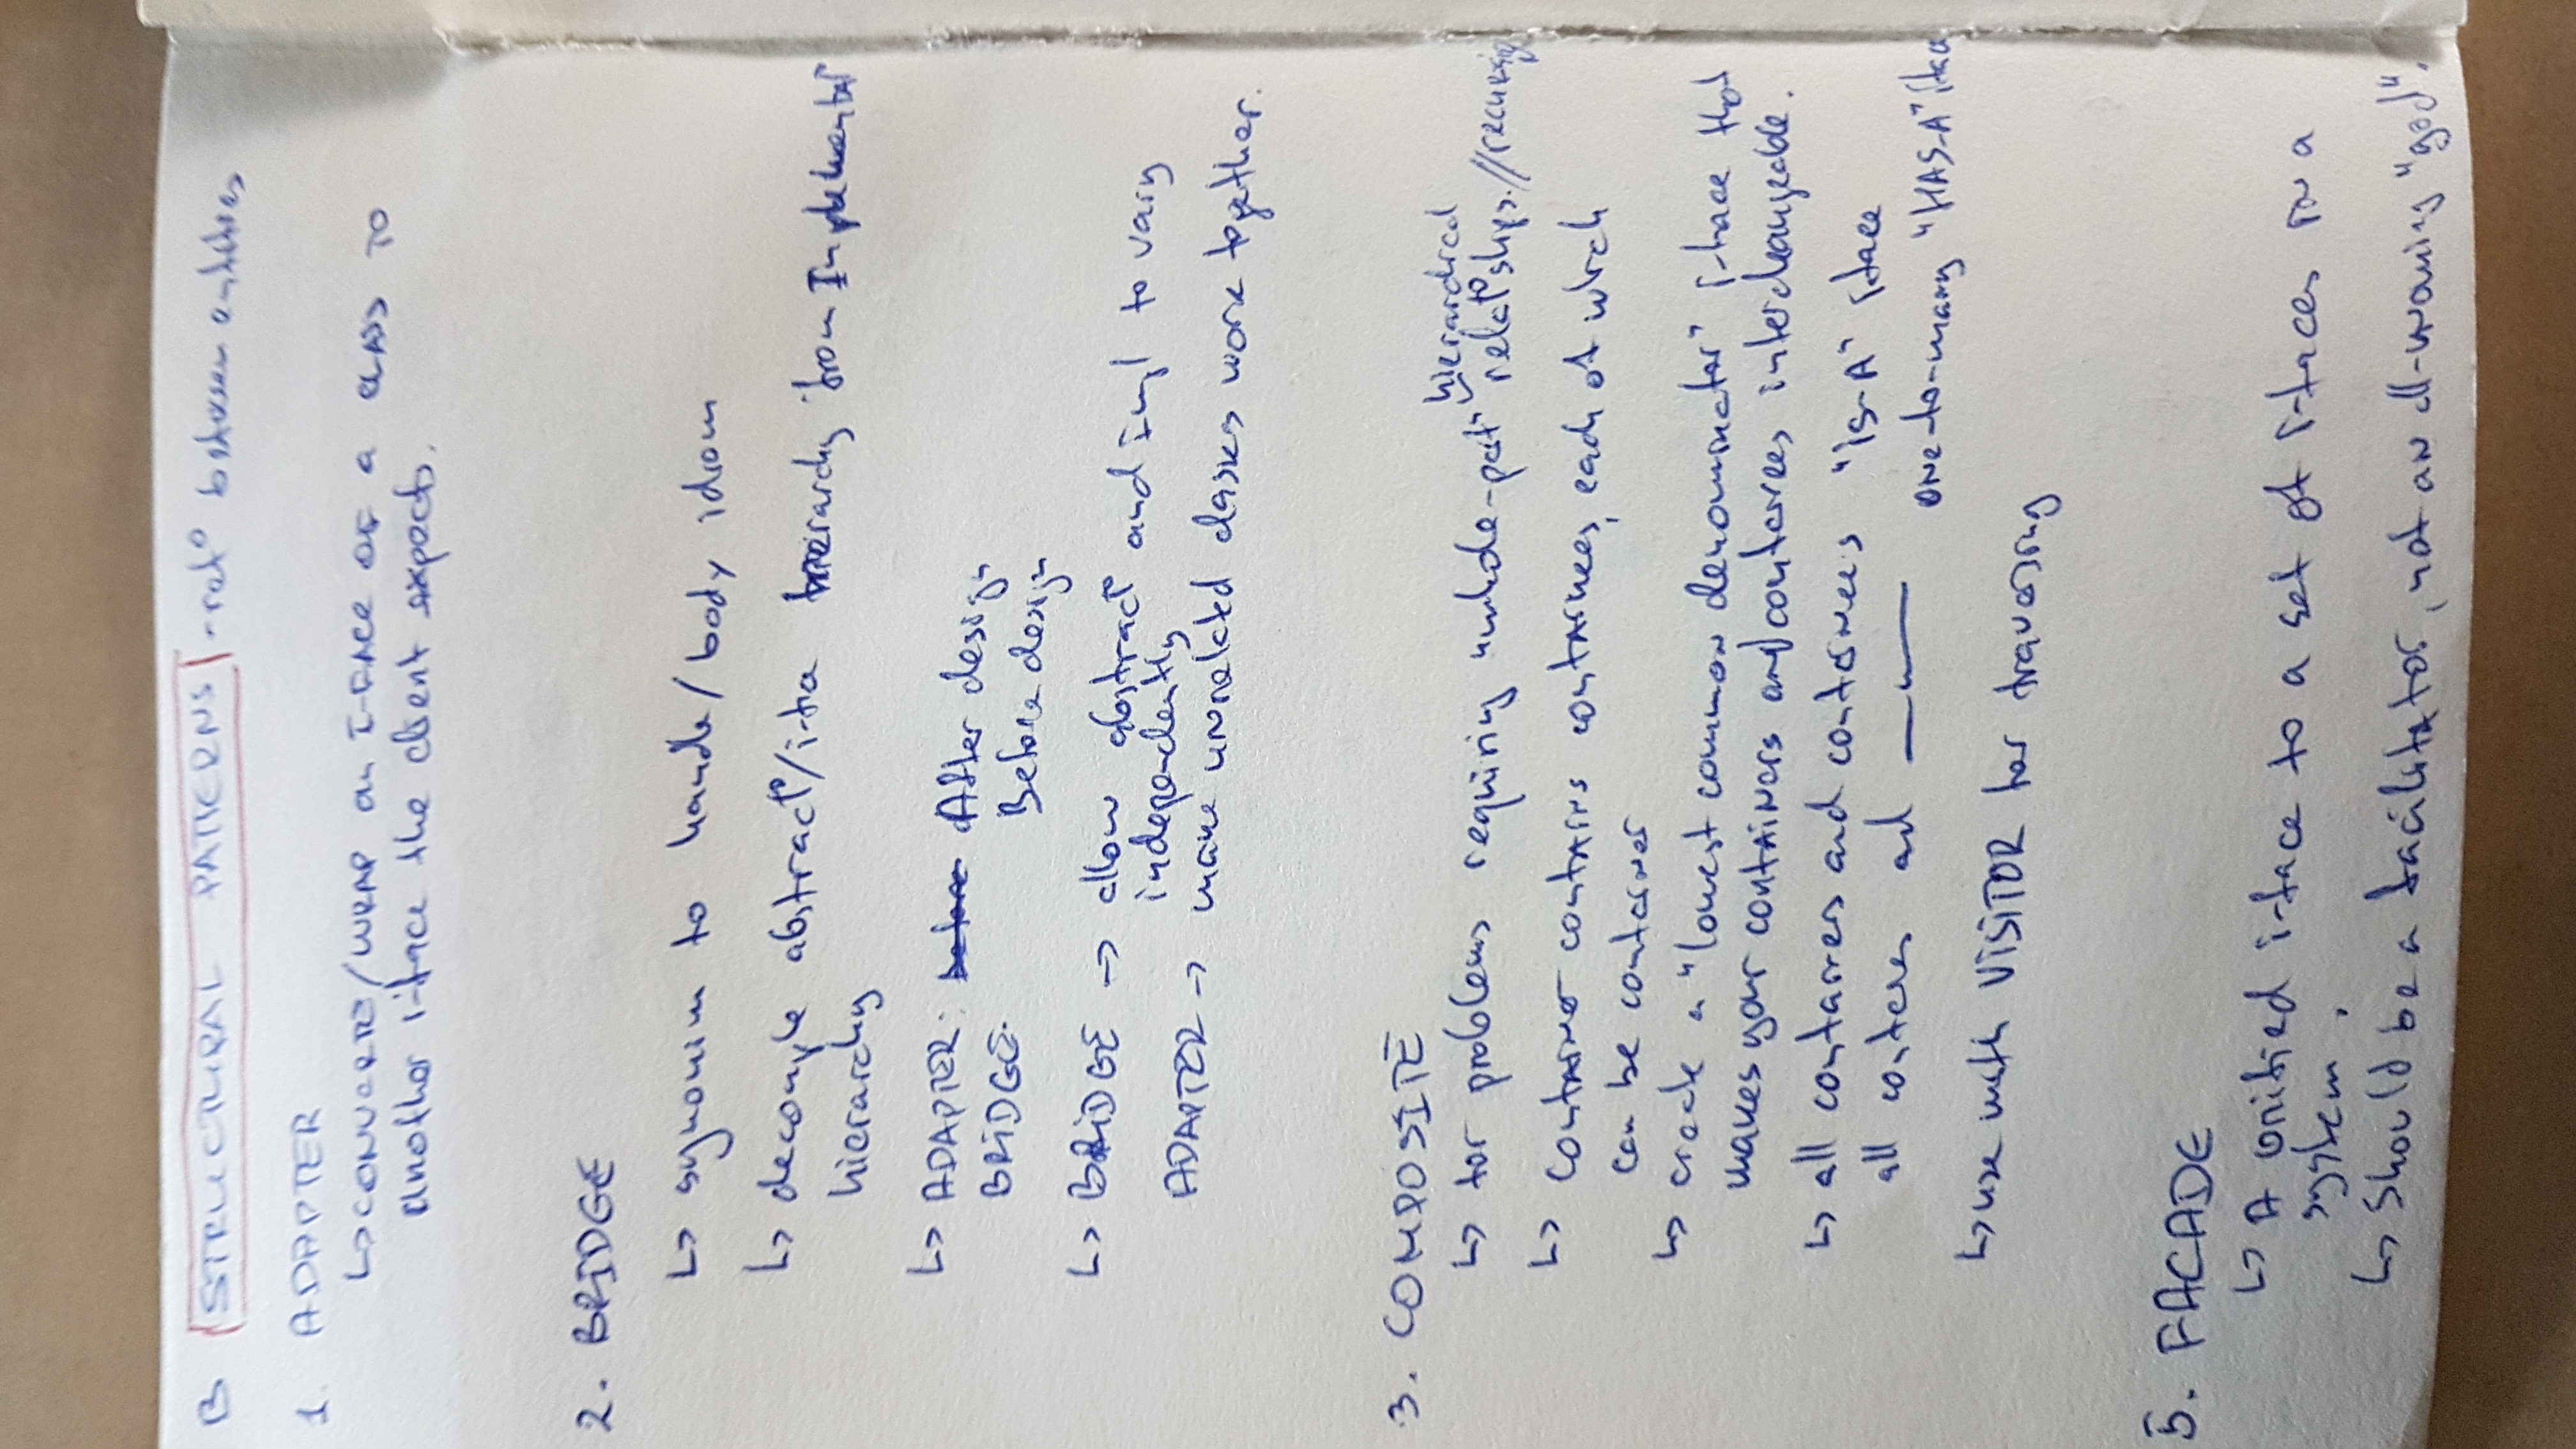 B STRUCTURAL PATTERNS - relº between entities
1. ADAPTER
↳ CONVERTS/WRAP an I-FACE OF a CLASS TO
another i-face the client expects.
2. BRIDGE
↳ synonim to handle/body idiom
↳ decouple abstractº/i-fa hierarchy from Implementatº
hierarchy
↳ ADAPTER: After design
BRIDGE. Before design
↳ BRIDGE → allow abstractº and impl to vary
independently
ADAPTER → make unrelated classes work together.
3. COMPOSITE
hierarchical
↳ for problems requiring "whole-part" relatºships. // recursion
↳ Container contains containees, each of which
can be container
↳ create a "lowest common denominator" i-face that
makes your containers and containees interchangeable.
↳ all containers and containees "is-A" iface
all conteres ad —〃— one-to-many "HAS-A" iface
↳ use with VISITOR for traversing
5. FACADE
↳ A unified i-face to a set of i-faces in a
system.
↳ Should be a facilitator, not an all-knowing "god".